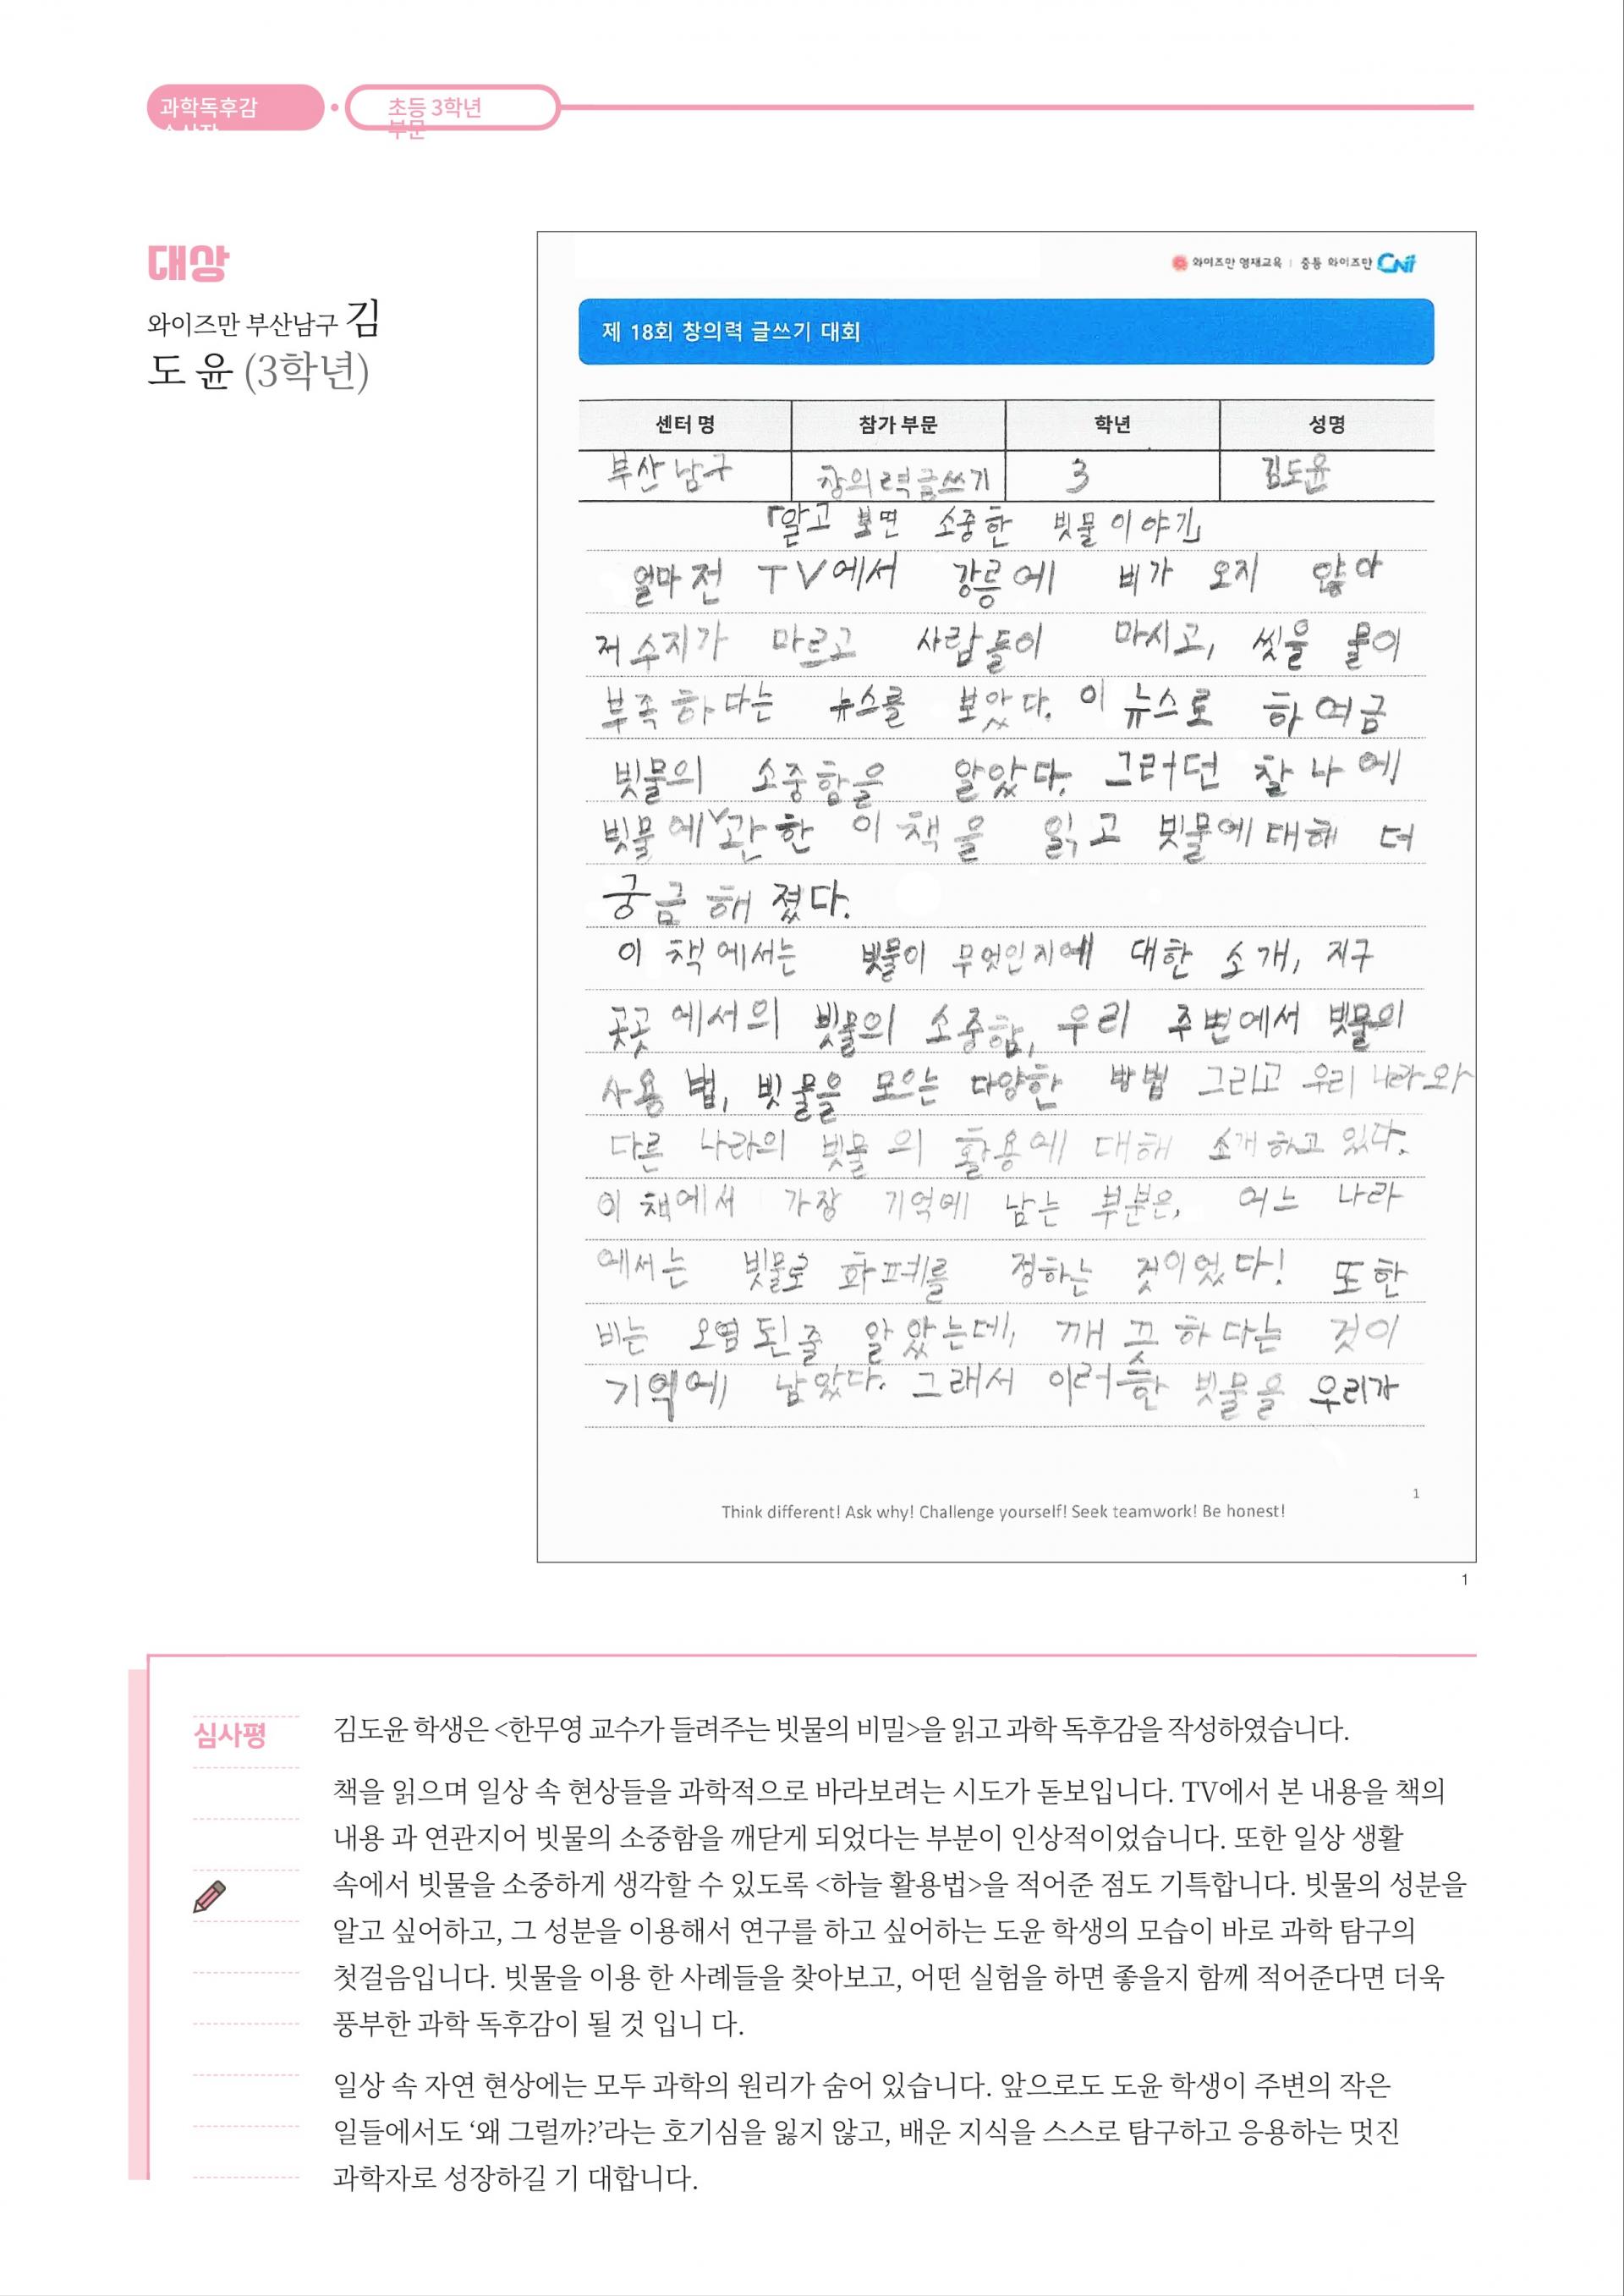 과학독후감
수상작
초등 3학년
부문
대상
와이즈만 부산남구 김
도 윤 (3학년)
와이즈만 영재교육 | 중등 와이즈만 CNi
제 18회 창의력 글쓰기 대회
센터 명 참가 부문 학년 성명
부산남구 창의력글쓰기 3 김도윤
「알고 보면 소중한 빗물이야기」
얼마전 TV에서 강릉에 비가 오지 않아
저수지가 마르고 사람들이 마시고, 씻을 물이
부족하다는 뉴스를 보았다. 이 뉴스로 하여금
빗물의 소중함을 알았다. 그러던 찰나에
빗물에∨관한 이 책을 읽고 빗물에 대해 더
궁금해졌다.
이 책에서는 빗물이 무엇인지에 대한 소개, 지구
곳곳에서의 빗물의 소중함, 우리 주변에서 빗물의
사용 법, 빗물을 모으는 다양한 방법 그리고 우리 나라와
다른 나라의 빗물의 활용에 대해 소개하고 있다.
이 책에서 가장 기억에 남는 부분은, 어느 나라
에서는 빗물로 화폐를 정하는 것이었다! 또한
비는 오염된줄 알았는데, 깨끗하다는 것이
기억에 남았다. 그래서 이러한 빗물을 우리가
1
Think different! Ask why! Challenge yourself! Seek teamwork! Be honest!
1
심사평
김도윤 학생은 <한무영 교수가 들려주는 빗물의 비밀>을 읽고 과학 독후감을 작성하였습니다.
책을 읽으며 일상 속 현상들을 과학적으로 바라보려는 시도가 돋보입니다. TV에서 본 내용을 책의
내용 과 연관지어 빗물의 소중함을 깨닫게 되었다는 부분이 인상적이었습니다. 또한 일상 생활
속에서 빗물을 소중하게 생각할 수 있도록 <하늘 활용법>을 적어준 점도 기특합니다. 빗물의 성분을
알고 싶어하고, 그 성분을 이용해서 연구를 하고 싶어하는 도윤 학생의 모습이 바로 과학 탐구의
첫걸음입니다. 빗물을 이용 한 사례들을 찾아보고, 어떤 실험을 하면 좋을지 함께 적어준다면 더욱
풍부한 과학 독후감이 될 것 입니 다.
일상 속 자연 현상에는 모두 과학의 원리가 숨어 있습니다. 앞으로도 도윤 학생이 주변의 작은
일들에서도 ‘왜 그럴까?’라는 호기심을 잃지 않고, 배운 지식을 스스로 탐구하고 응용하는 멋진
과학자로 성장하길 기 대합니다.